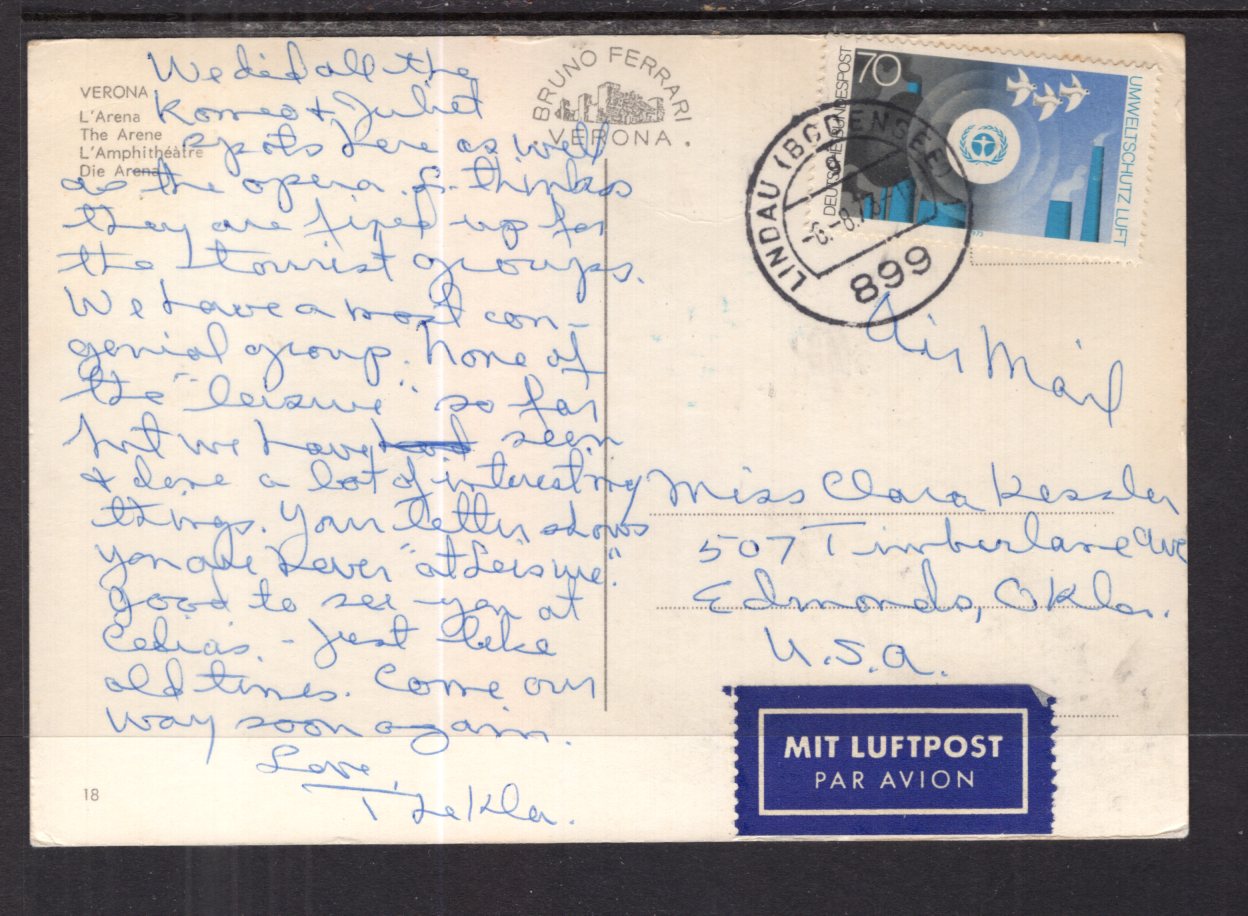 VERONA
L'Arena
The Arene
L'Amphithéâtre
Die Arena
We did all the
Romeo + Juliet
spots here as well
as the opera. I think
they are fixed up for
the tourist groups.
We have a most con-
genial group. None of
the "leisure" so far
but we have had seen
& done a lot of interesting
things. Your letter shows
you are never "at leisure".
Good to see you at
Celia's. - Just like
old times. Come our
way soon again.
Love,
Thekla.
18
BRUNO FERRARI
VERONA
DEUTSCHE BUNDESPOST
70
UMWELTSCHUTZ LUFT
LINDAU (BODENSEE)
899
Air Mail
Miss Clara Kessler
507 Timberlane Ave
Edmonds, Okla.
U.S.A.
MIT LUFTPOST
PAR AVION